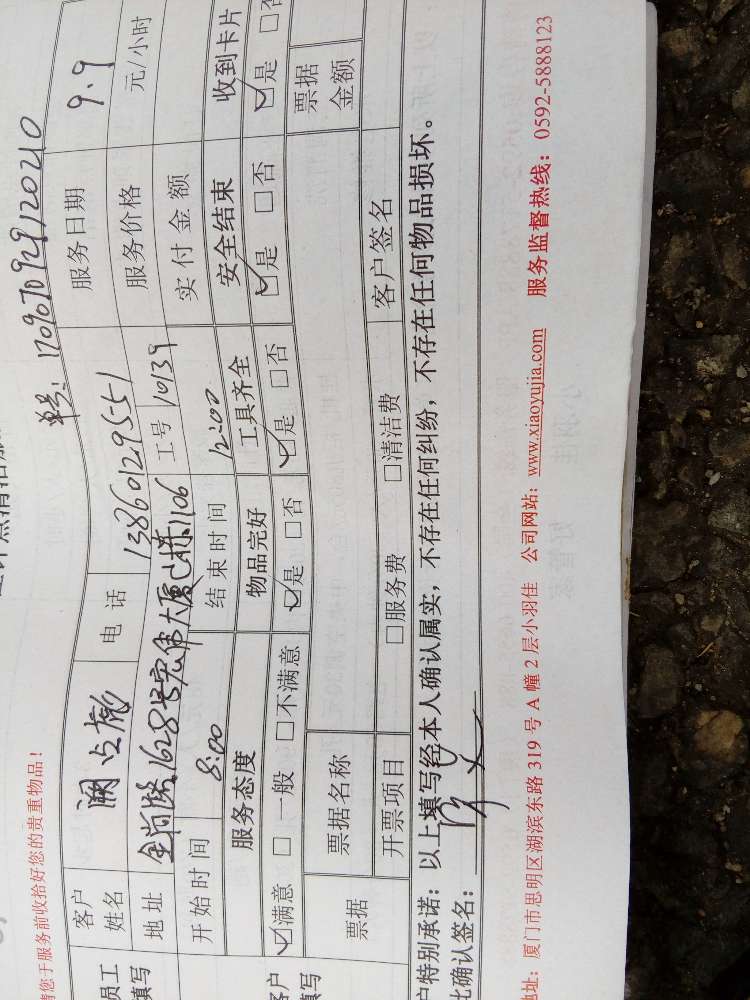 请您于服务前收拾好您的贵重物品！
单号: 17090709291120210
员工填写
客户姓名 电话 13860129551 服务日期 9.9
地址 1628号宏伟大厦 1106 工号 10139 服务价格 元/小时
开始时间 8:00 结束时间 12:00 实付金额
客户填写
服务态度 物品完好 工具齐全 安全结束 收到卡片
☑满意 □一般 □不满意 ☑是 □否 ☑是 □否 ☑是 □否 ☑是
票据 票据名称 票据金额
开票项目 □服务费 □清洁费 客户签名
户特别承诺：以上填写经本人确认属实，不存在任何纠纷，不存在任何物品损坏。
此确认签名：
地址：厦门市思明区湖滨东路 319 号 A 幢 2 层小羽佳 公司网站：www.xiaoyujia.com 服务监督热线：0592-5888123